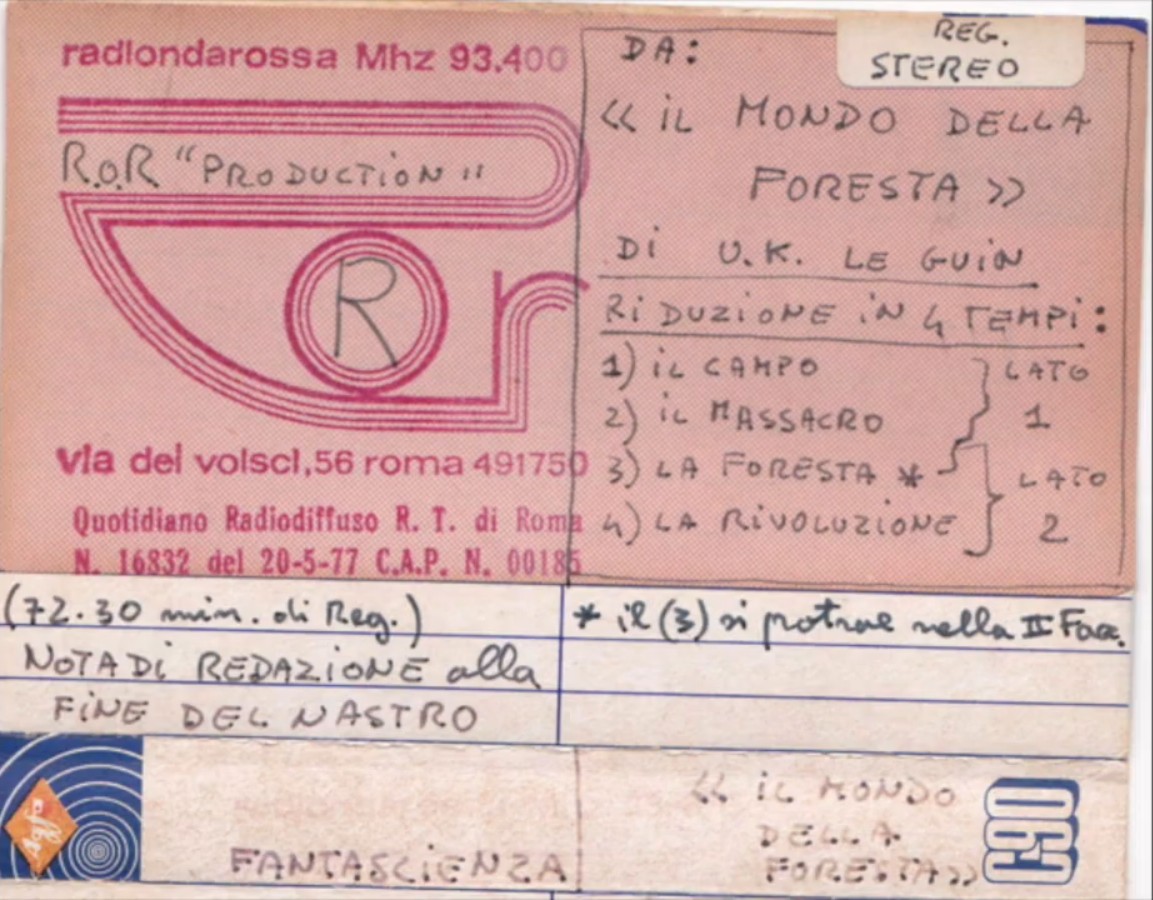 radiondarossa Mhz 93.400
R.O.R "PRODUCTION"
R
via dei volsci,56 roma 491750
Quotidiano Radiodiffuso R. T. di Roma
N. 16832 del 20-5-77 C.A.P. N. 00185
REG.
STEREO
DA:
<< iL MONDO DELLA
FORESTA >>
Di U.K. LE GUiN
RiDUZiONE iN 4 TEMPi:
1) iL CAMPO
2) iL MASSACRO
LATO
1
3) LA FORESTA *
4) LA RiVOLUZiONE
LATO
2
(72.30 min. di Reg.)
NOTA Di REDAZiONE alla
FiNE DEL NASTRO
* il (3) si potrae nella II Facc.
agfa
FANTASCiENZA
<< iL MONDO
DELLA
FORESTA>>
C90